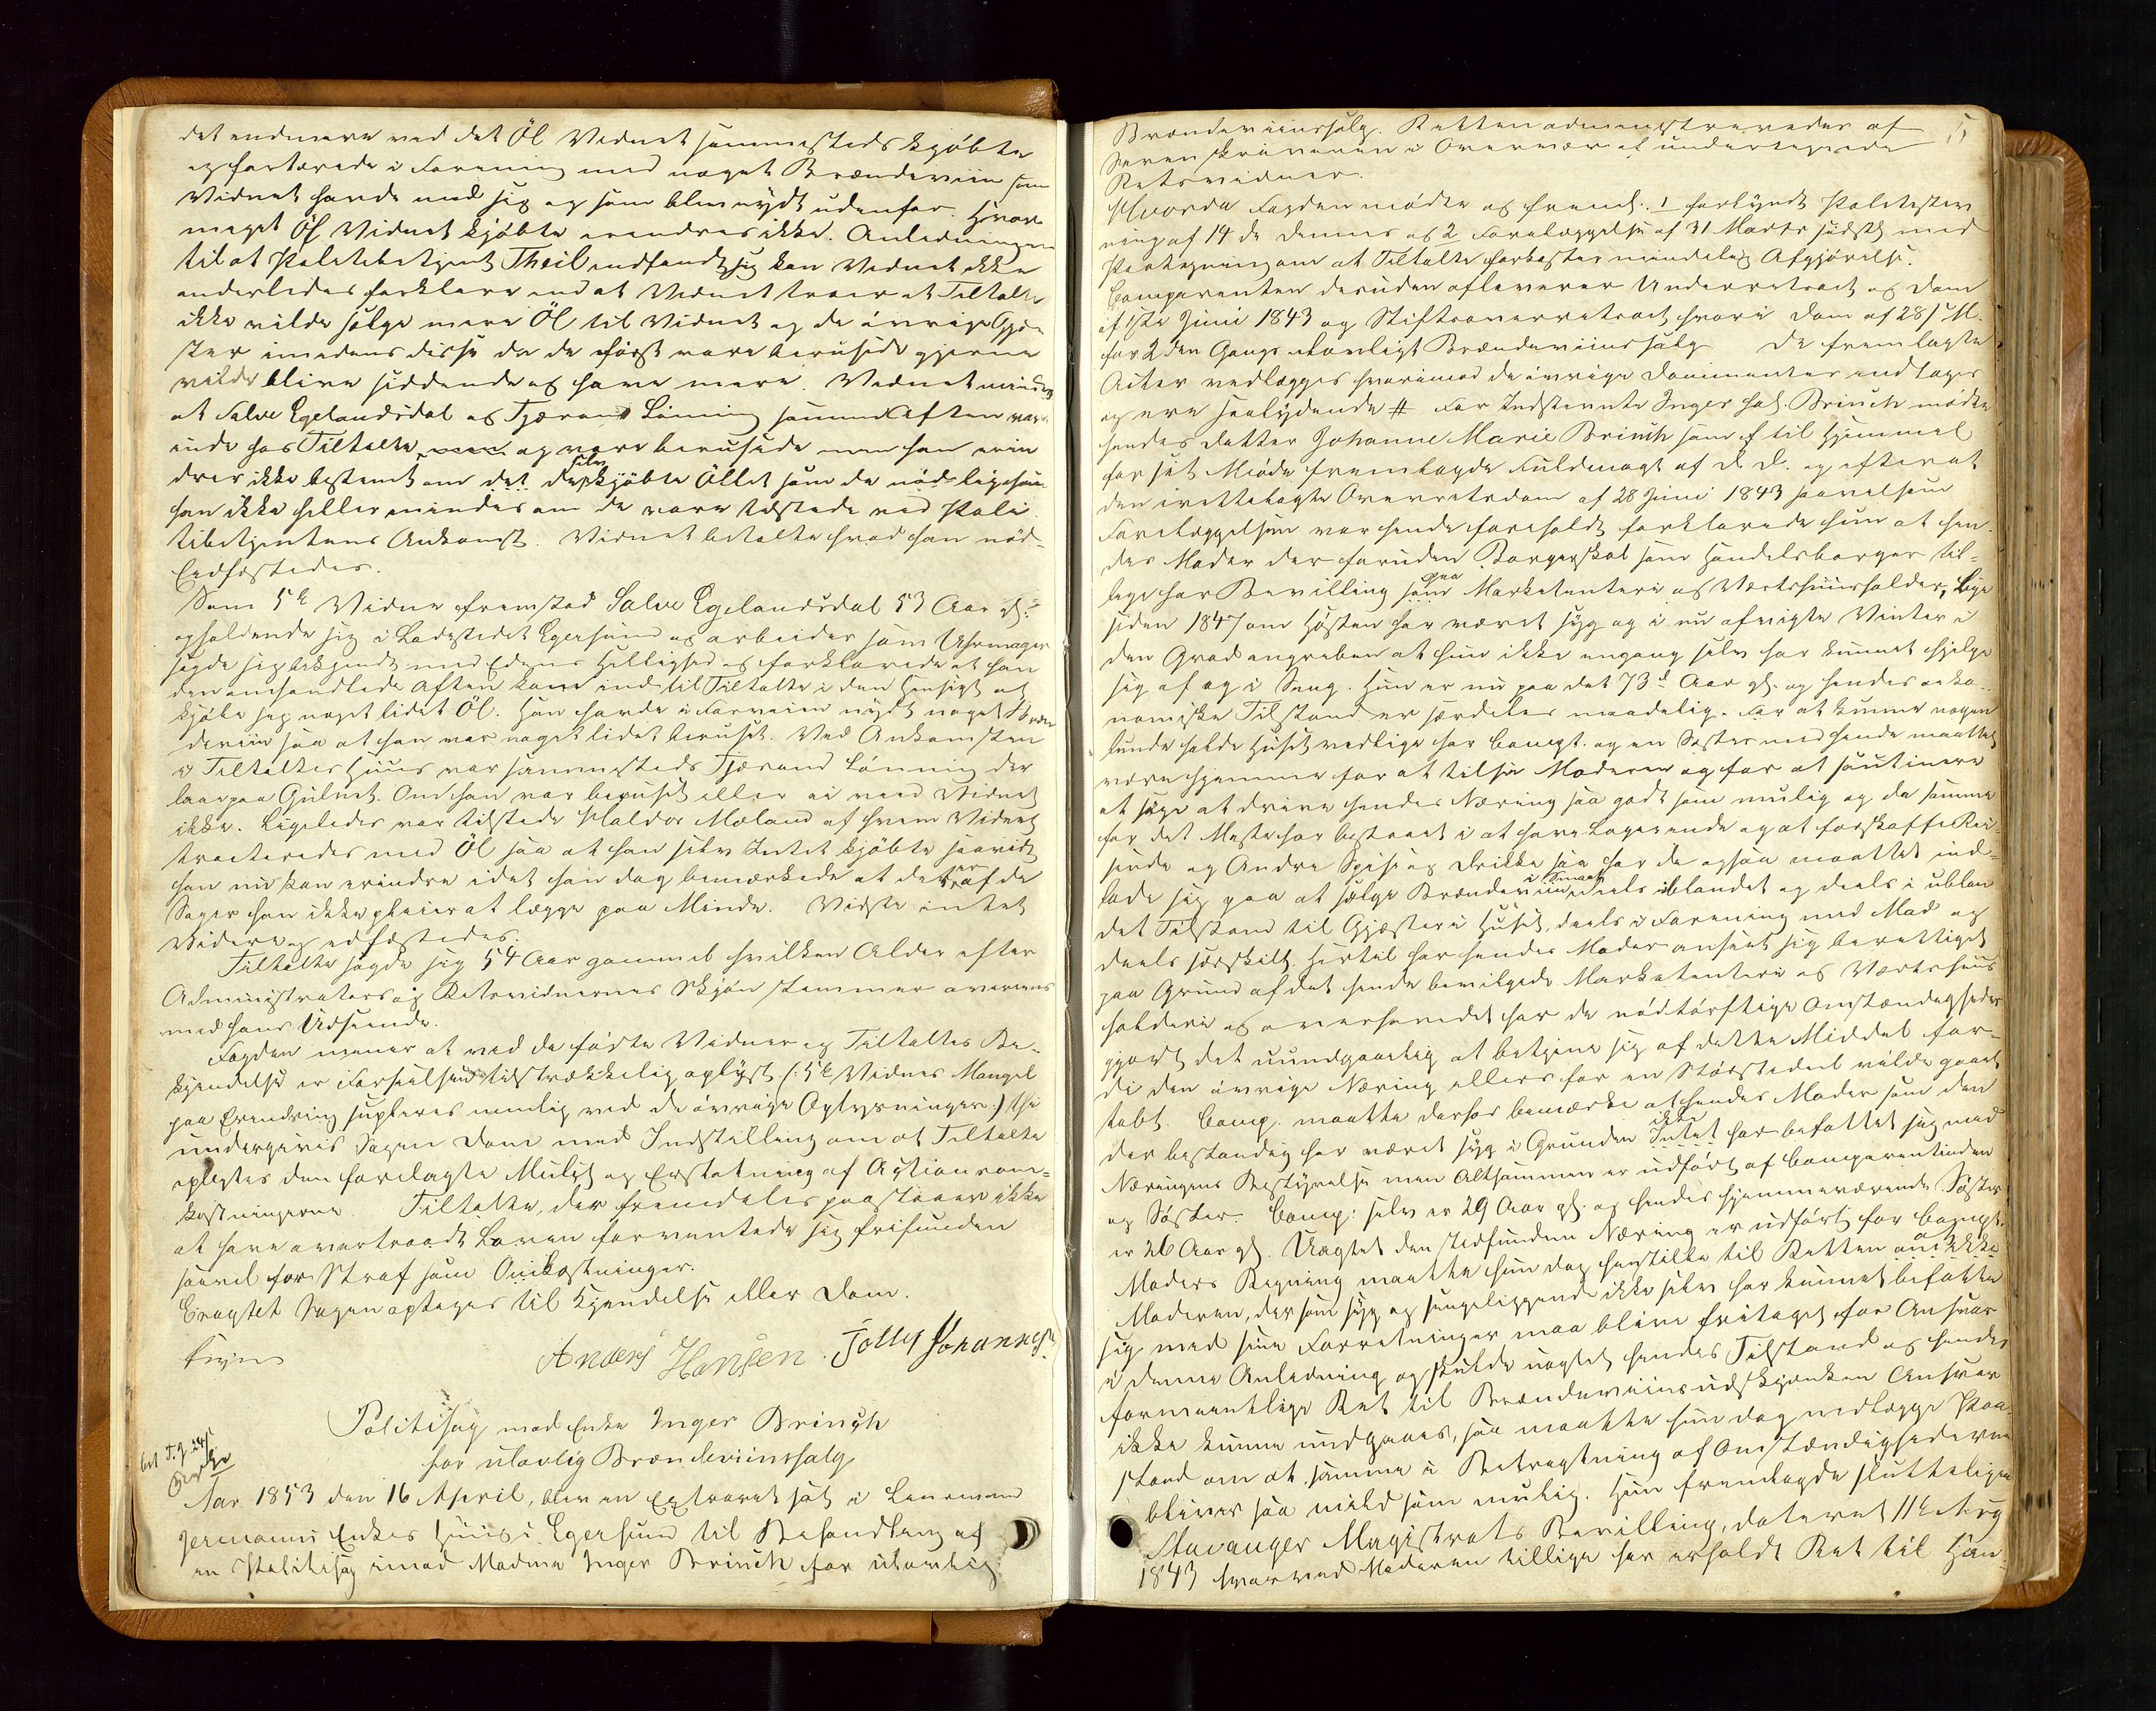 det endmere ved det Öl Vidnet sammesteds kjøbte
og fortærede i Forening med noget Brændeviin som
Vidnet havde med sig og som blev nydt udenfor. Hvor
meget Öl Vidnet kjøbte erindres ikke. Anledningen
til at Politibetjent Theil indfandt sig kan Vidnet ikke
anderledes forklare end at Vidnet troer at Tiltalte
ikke vilde sælge mere Öl til Vidnet og de øvrige Gjæ-
ster imedens disse da de først vare berusede gjerne
vilde blive siddende og have mere. Vidnet mindes
at Salve Egelandsdal og Tjærand Lönning samme Aften var
inde hos Tiltalte og vare berusede men han erin
drer ikke bestemt om det de selv kjøbte Öllet som de nød ligesom
han ikke heller mindes om de vare tilstede ved Poli
tibetjentens Ankomst. Vidnet betalte hvad han nød-
Eedfæstedes.
Som 5te Vidne fremstod Salve Egelandsdal 53 Aar gl:
opholdende sig i Ladestedet Egersund og arbeider som Uhrmager
sagde sig bekjendt med Edens Hellighed og forklarede at han
den omhandlede Aften kom ind til Tiltalte i den Hensigt at
kjøbe sig noget lidet Öl. Han havde i Forveien nydt noget Bræn
deviin saa at han var noget lidet beruset. Ved Ankomsten
i Tiltaltes Huus var sammesteds Tjærand Lönning der
laae paa Gulvet. Om han var beruset eller ei veed Vidnet
ikke. Ligeledes var tilstede Haldor Mæland af hvem Vidnet
tracteredes med Öl saa at han selv Intet kjøbte saavidt
han nu kan erindre idet han dog bemærkede at det er af de
Sager han ikke pleier at lægge paa Minde. Vidste intet
Videre og edfæstedes.
Tiltalte sagde sig 54 Aar gammel hvilken Alder efter
Administrators og Retsvidnernes Skjøn stemmer overeens
med hans Udseende.
Fogden mener at ved de førte Vidner og Tiltaltes Be-
kjendelse er Forseelsen tilstrækkelig oplyst (: 5te Vidnes Mangel
paa Erindring supleres nemlig ved de øvrige Oplysninger:) thi
undergives Sagen Dom med Indstilling om at Tiltalte
ilægtes den forelagte Mulct og Erstatning af Actionsom-
kostningerne. Tiltalte, der fremdeles paastaaer ikke
at have overtraadt Loven forventede sig frifunden
saavel for Straf som Omkostninger.
Eragtet Sagen optages til Kjendelse eller Dom.
Anders Hansen. Tollef Johannes.
Politisag mod Enke Inger Brinch
for ulovlig Brændeviinssalg
Aar 1853 den 16 April, blev en Extraret sat i Lensmand
Jermanns Enkes Huus i Egersund til Behandling af
en Politisag imod Madme Inger Brinch for ulovlig
Brændeviinssalg. Retten administreredes af
Sorenskriveren i Overvær af undertegnede
Retsvidner.
Hvorda Fogden mødte og freml: 1 forkyndt Politistev
ning af 14 de Dennes og 2 Forelæggelse af 31 Marts sidstl. med
Paategning om at Tiltalte forkaster mindelig Afgjørelse.
Comparenten desuden afleverer Underretsact og Dom
af 1ste Juni 1843 og Stiftsoverretsact hvori Dom af 28 s. M.
for 2den Gangs ulovligt Brændeviinssalg De fremlagte
Acter vedlægges hvorimod de øvrige Documenter indtages
og ere saalydende # For Indstevnte Inger sal. Brinch mødte
hendes Datter Johanne Marie Brinch som til Hjemmel
for sit Møde fremlagde Fuldmagt af D. D. og efterat
den irettelagte Overretsdom af 28 Juni 1843 saavelsom
Forelæggelsen var hende foreholdt forklarede hun at hen-
des Moder der foruden Borgerskab som Handelsborger til-
lige har Bevilling paa Marketenteri og Værtshuusholder, lige
siden 1847 om Høsten har været syg og i nu afvigte Vinter i
den Grad angreben at hun ikke engang selv har kunnet hjelpe
sig af og i Seng. Hun er nu paa det 73d Aar gl. og hendes oeko-
nomiske Tilstand er særdeles maadelig. For at kunne nogen
lunde holde Huset vedlige har Compt. og en Søster med hende maattet
være hjemme for at tilsee Moderen og for at soutinere
at sige at drive hendes Næring saa godt som mulig og da samme
for det Meste har bestaaet i at have Logerende og at forskaffe Rei-
sende og Andre Spise og Drikke saa har de ogsaa maattet ind-
lade sig paa at sælge Brændeviin i Smaat deels iblandet og deels i ublan
det Tilstand til Gjæster i Huset, deels i Forening med Mad og
deels særskilt. Hertil har hendes Moder anseet sig berettiget
paa Grund af det hende bevilgede Marketenteri og Værtshuus
holderi og overhovedet har de nødtørftige Omstændigheder
gjort det uundgaaelig at betjene sig af dette Middel for-
di den øvrige Næring ellers for en Størstedeel vilde gaaet
tabt. Comp. maatte derhos bemærke at hendes Moder som den
der bestandig har været syg i Grunden ikke har befattet sig med
Næringens Bestyrelse men Altsammen er udført af Comparentinden
og Søster. Comp: selv er 29 Aar gl. og hendes hjemmeværende Søster
er 26 Aar gl. Uagtet den stedfundne Næring er udført for Compts.
Moders Regning maatte hun dog henstille til Retten om ikke
Moderen, der som syg og sengeliggende ikke selv har kunnet befatte
sig med sine Forretninger maa blive fritaget for Ansvar
i denne Anledning og skulde uagtet hendes Tilstand og hendes
formeentlige Ret til Brændeviinsudskjænken Ansvar
ikke kunne undgaaes, saa maatte hun dog nedlægge Paa-
stand om at samme i Betragtning af Omstændighederne
bliver saa mild som mulig. Hun fremlagde sluttelig
Stavanger Magistrats Bevilling, dateret 11te Aug
1843 hvorved Moderen tillige har erholdt Ret til Han-